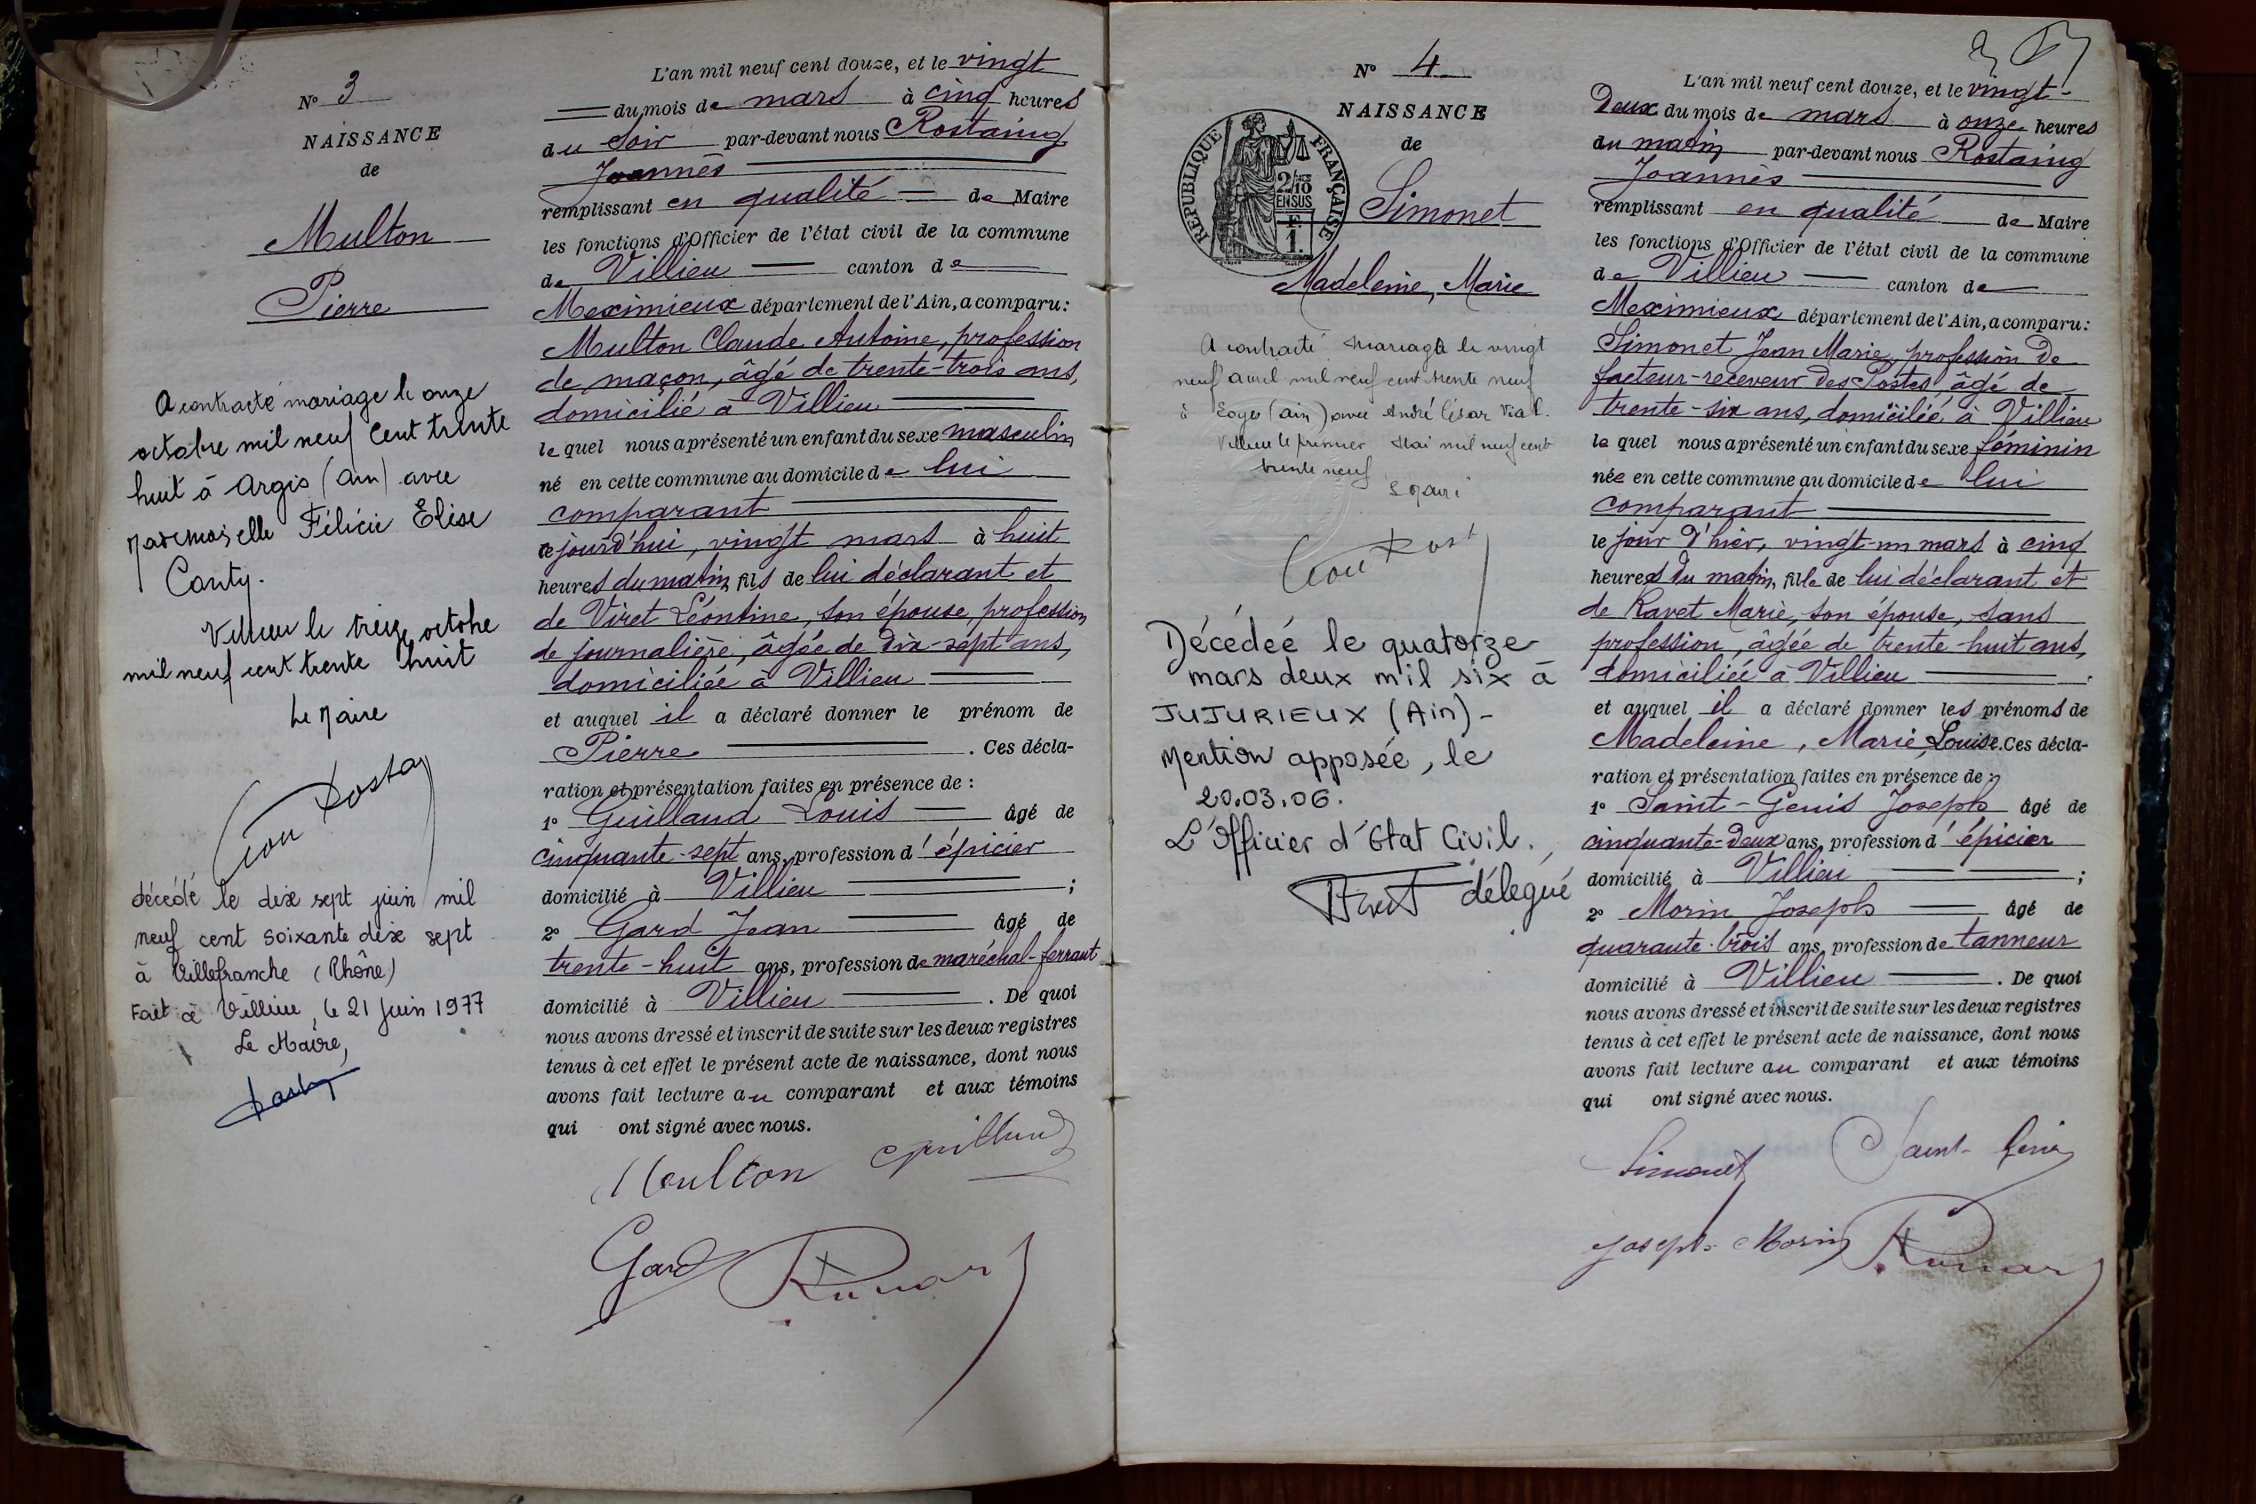 N° 3
NAISSANCE
de
Multon
Pierre
A contracté mariage le onze
octobre mil neuf cent trente
huit à Argis (Ain) avec
Mademoiselle Félicie Elise
Conty.
Villieu le treize octobre
mil neuf cent trente huit
Le Maire
décédé le dix sept juin mil
neuf cent soixante dix sept
à Villefranche (Rhône)
Fait à Villieu, le 21 Juin 1977
Le Maire,
L'an mil neuf cent douze, et le vingt
du mois de mars à cinq heures
du soir par-devant nous Rostaing
Joannès
remplissant en qualité de Maire
les fonctions d'Officier de l'état civil de la commune
de Villieu canton de
Meximieux département de l'Ain, a comparu :
Multon Claude Antoine, profession
de maçon, âgé de trente-trois ans,
domicilié à Villieu
le quel nous a présenté un enfant du sexe masculin
né en cette commune au domicile de lui
comparant
cejourd'hui, vingt mars à huit
heures du matin, fils de lui déclarant et
de Viret Léontine, son épouse, profession
de journalière, âgée de dix-sept ans,
domiciliée à Villieu
et auquel il a déclaré donner le prénom de
Pierre . Ces décla-
ration et présentation faites en présence de :
1° Guilland Louis âgé de
cinquante-sept ans, profession d'épicier
domicilié à Villieu ;
2° Gard Jean âgé de
trente-huit ans, profession de maréchal-ferrant
domicilié à Villieu . De quoi
nous avons dressé et inscrit de suite sur les deux registres
tenus à cet effet le présent acte de naissance, dont nous
avons fait lecture au comparant et aux témoins
qui ont signé avec nous.
Moulton Guilland
Gard
N° 4
NAISSANCE
de
RÉPUBLIQUE FRANÇAISE
2/10
EN SUS
F.
1.
Simonet
Madeleine, Marie
A contracté mariage le vingt
neuf avril mil neuf cent trente neuf
à (Ain) avec André César Vial.
Villieu le premier Mai mil neuf cent
trente neuf
Le Maire
Décédeé le quatorze
mars deux mil six à
JUJURIEUX (Ain) -
Mention apposée, le
20.03.06.
L'Officier d'Etat Civil.
délegué
L'an mil neuf cent douze, et le vingt-
deux du mois de mars à onze heures
du matin par-devant nous Rostaing
Joannès
remplissant en qualité de Maire
les fonctions d'Officier de l'état civil de la commune
de Villieu canton de
Meximieux département de l'Ain, a comparu :
Simonet Jean Marie, profession de
facteur-receveur des Postes, âgé de
trente-six ans, domicilié à Villieu
le quel nous a présenté un enfant du sexe féminin
née en cette commune au domicile de lui
comparant
le jour d'hier, vingt-un mars à cinq
heures du matin, fille de lui déclarant et
de Ravet Marie, son épouse, sans
profession, âgée de trente-huit ans,
domiciliée à Villieu .
et auquel il a déclaré donner les prénoms de
Madeleine, Marie, Louise. Ces décla-
ration et présentation faites en présence de :
1° Saint-Genis Joseph âgé de
cinquante-deux ans, profession d'épicier
domicilié à Villieu ;
2° Morin Joseph âgé de
quarante-trois ans, profession de tanneur
domicilié à Villieu . De quoi
nous avons dressé et inscrit de suite sur les deux registres
tenus à cet effet le présent acte de naissance, dont nous
avons fait lecture au comparant et aux témoins
qui ont signé avec nous.
Simonet Saint-Genis
Joseph Morin